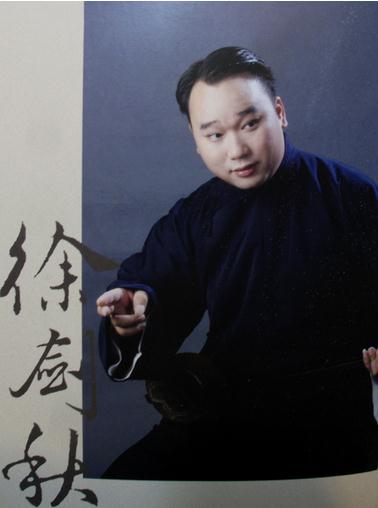 徐剑秋